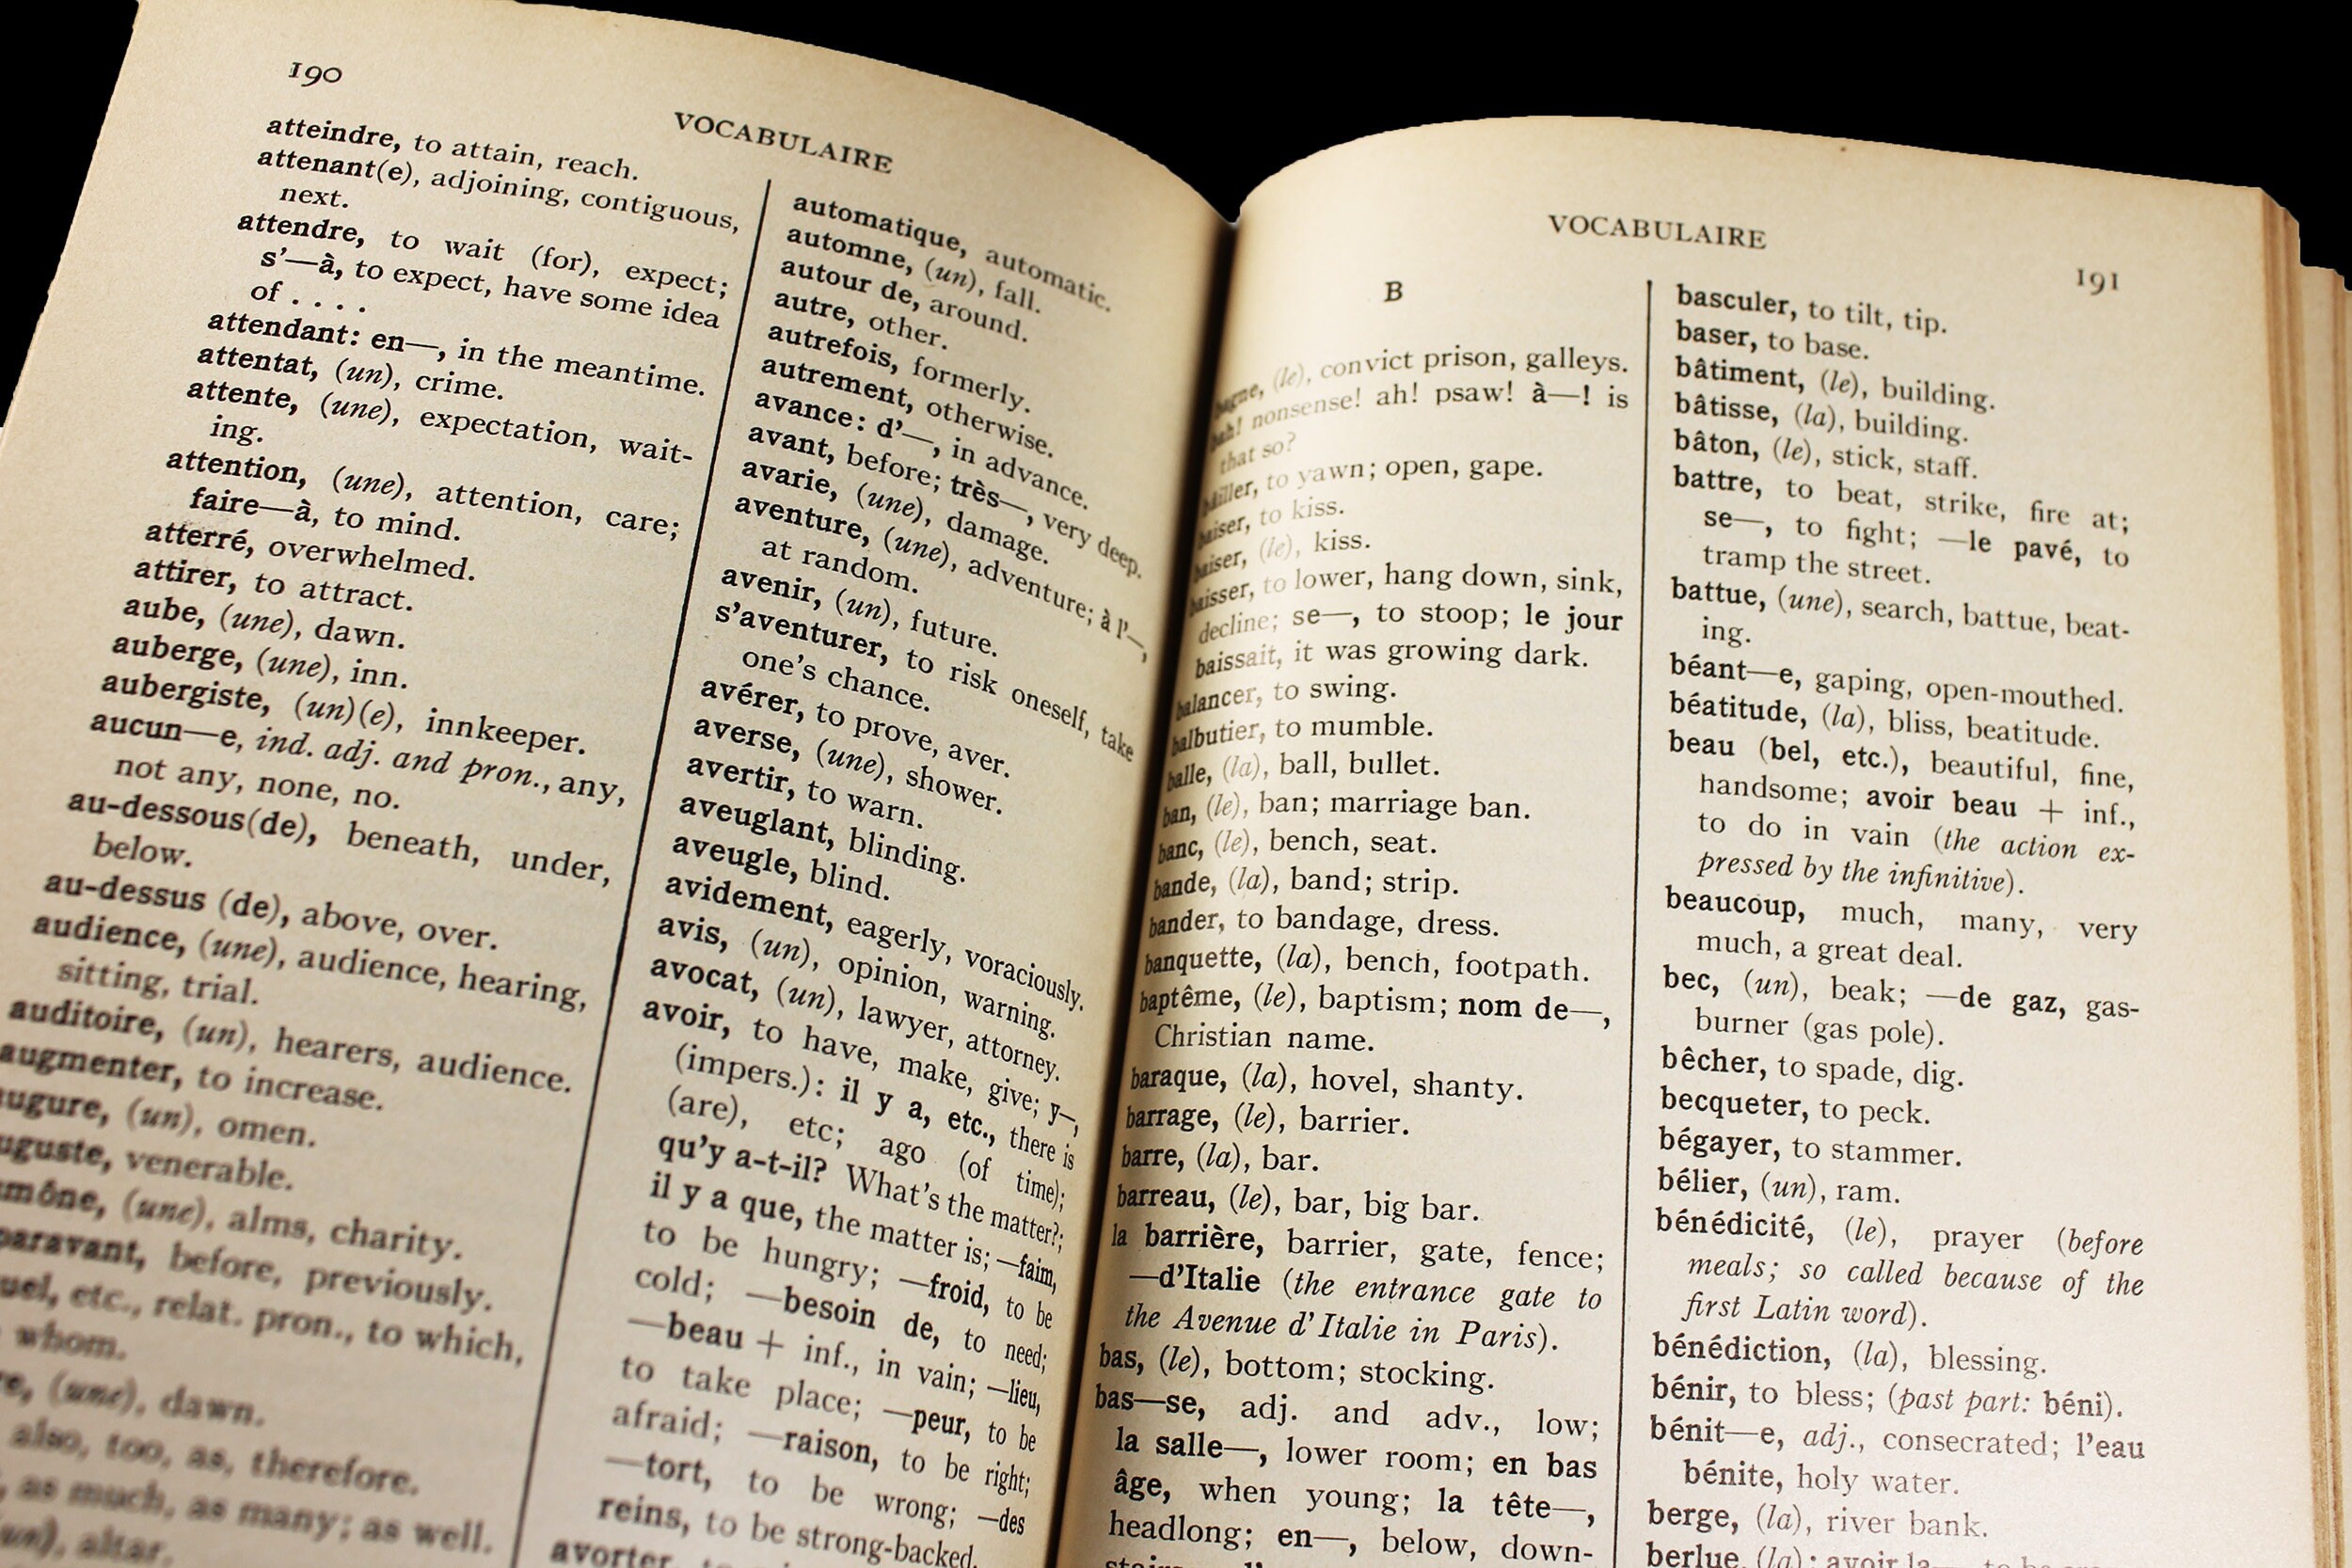 190
VOCABULAIRE
atteindre, to attain, reach.
attenant(e), adjoining, contiguous,
next.
attendre, to wait (for), expect;
s'—à, to expect, have some idea
of . . . .
attendant: en—, in the meantime.
attentat, (un), crime.
attente, (une), expectation, wait-
ing.
attention, (une), attention, care;
faire—à, to mind.
atterré, overwhelmed.
attirer, to attract.
aube, (une), dawn.
auberge, (une), inn.
aubergiste, (un)(e), innkeeper.
aucun—e, ind. adj. and pron., any,
not any, none, no.
au-dessous(de), beneath, under,
below.
au-dessus (de), above, over.
audience, (une), audience, hearing,
sitting, trial.
auditoire, (un), hearers, audience.
augmenter, to increase.
(un), omen.
venerable.
(une), alms, charity.
before, previously.
etc., relat. pron., to which,
whom.
(une), dawn.
also, too, as, therefore.
as much, as many; as well.
(un), altar.
automatique, automatic.
automne, (un), fall.
autour de, around.
autre, other.
autrefois, formerly.
autrement, otherwise.
avance: d'—, in advance.
avant, before; très—, very deep.
avarie, (une), damage.
aventure, (une), adventure; à l'—,
at random.
avenir, (un), future.
s'aventurer, to risk oneself, take
one's chance.
avérer, to prove, aver.
averse, (une), shower.
avertir, to warn.
aveuglant, blinding.
aveugle, blind.
avidement, eagerly, voraciously.
avis, (un), opinion, warning.
avocat, (un), lawyer, attorney.
avoir, to have, make, give; y—,
(impers.): il y a, etc., there is
(are), etc; ago (of time);
qu'y a-t-il? What's the matter?;
il y a que, the matter is; —faim,
to be hungry; —froid, to be
cold; —besoin de, to need;
—beau + inf., in vain; —lieu,
to take place; —peur, to be
afraid; —raison, to be right;
—tort, to be wrong; —des
reins, to be strong-backed.
avorter,
VOCABULAIRE
191
B
bagne, (le), convict prison, galleys.
bah! nonsense! ah! psaw! à—! is
that so?
bâiller, to yawn; open, gape.
baiser, to kiss.
baiser, (le), kiss.
baisser, to lower, hang down, sink,
decline; se—, to stoop; le jour
baissait, it was growing dark.
balancer, to swing.
balbutier, to mumble.
balle, (la), ball, bullet.
ban, (le), ban; marriage ban.
banc, (le), bench, seat.
bande, (la), band; strip.
bander, to bandage, dress.
banquette, (la), bench, footpath.
baptême, (le), baptism; nom de—,
Christian name.
baraque, (la), hovel, shanty.
barrage, (le), barrier.
barre, (la), bar.
barreau, (le), bar, big bar.
la barrière, barrier, gate, fence;
—d'Italie (the entrance gate to
the Avenue d'Italie in Paris).
bas, (le), bottom; stocking.
bas—se, adj. and adv., low;
la salle—, lower room; en bas
âge, when young; la tête—,
headlong; en—, below, down-
basculer, to tilt, tip.
baser, to base.
bâtiment, (le), building.
bâtisse, (la), building.
bâton, (le), stick, staff.
battre, to beat, strike, fire at;
se—, to fight; —le pavé, to
tramp the street.
battue, (une), search, battue, beat-
ing.
béant—e, gaping, open-mouthed.
béatitude, (la), bliss, beatitude.
beau (bel, etc.), beautiful, fine,
handsome; avoir beau + inf.,
to do in vain (the action ex-
pressed by the infinitive).
beaucoup, much, many, very
much, a great deal.
bec, (un), beak; —de gaz, gas-
burner (gas pole).
bêcher, to spade, dig.
becqueter, to peck.
bégayer, to stammer.
bélier, (un), ram.
bénédicité, (le), prayer (before
meals; so called because of the
first Latin word).
bénédiction, (la), blessing.
bénir, to bless; (past part: béni).
bénit—e, adj., consecrated; l'eau
bénite, holy water.
berge, (la), river bank.
berlue, (la); avoir la—, to be